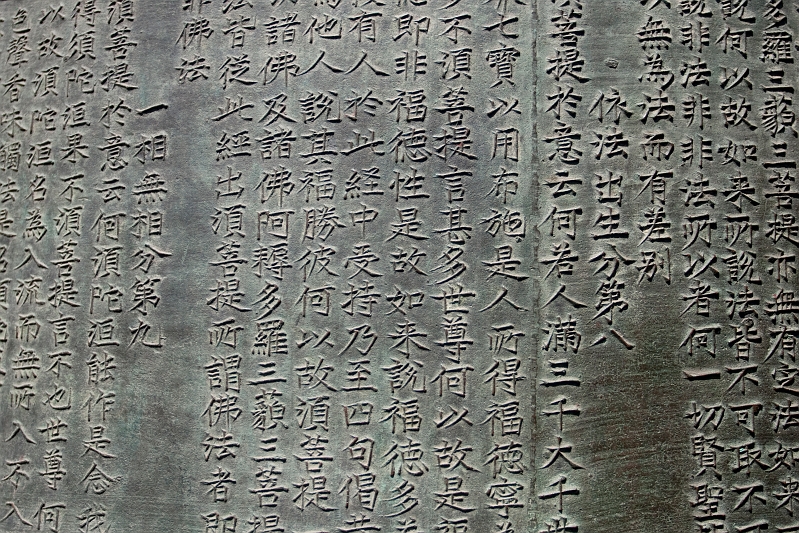 多羅三藐三菩提亦無有定法如来
說何以故如来所說法皆不可取不可
說非法非非法所以者何一切賢聖
以無為法而有差别
依法出生分第八
須菩提於意云何若人滿三千大千世
七寶以用布施是人所得福徳寧為
多不須菩提言甚多世尊何以故是福
徳即非福徳性是故如来說福徳多
復有人於此経中受持乃至四句偈等
為他人說其福勝彼何以故須菩提
切諸佛及諸佛阿耨多羅三藐三菩提
法皆從此經出須菩提所謂佛法者即
非佛法
一相無相分第九
須菩提於意云何須陀洹能作是念我
得須陀洹果不須菩提言不也世尊何
以故須陀洹名為入流而無所入不入
色聲香味觸法是名須陀